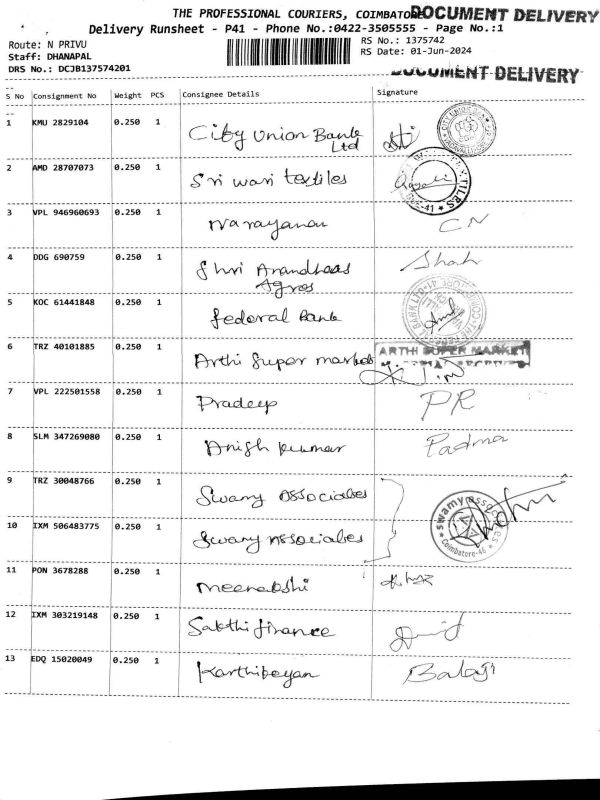 THE PROFESSIONAL COURIERS, COIMBATORE
DOCUMENT DELIVERY
Delivery Runsheet - P41 - Phone No.:0422-3505555 - Page No.:1
Route: N PRIVU
RS No.: 1375742
Staff: DHANAPAL
RS Date: 01-Jun-2024
DRS No.: DCJB137574201
DOCUMENT DELIVERY
S No Consignment No Weight PCS Consignee Details Signature
1 KMU 2829104 0.250 1 City Union Bank Ltd
2 AMD 28707073 0.250 1 Sri wari textiles
3 VPL 946960693 0.250 1 Narayanan CN
4 DDG 690759 0.250 1 Shri Agros Shah
5 KOC 61441848 0.250 1 federal Bank
6 TRZ 40101885 0.250 1 Arthi Super market ARTHI SUPER MARKET
7 VPL 222501558 0.250 1 Pradeep PR
8 SLM 347269080 0.250 1 Anish kumar Padma
9 TRZ 30048766 0.250 1 Swamy Associates
swamy associates
Coimbatore-46
10 IXM 506483775 0.250 1 Swamy Associates
11 PON 3678288 0.250 1 meenakshi
12 IXM 303219148 0.250 1 Sakthi finance
13 EDQ 15020049 0.250 1 Karthikeyan Balaji